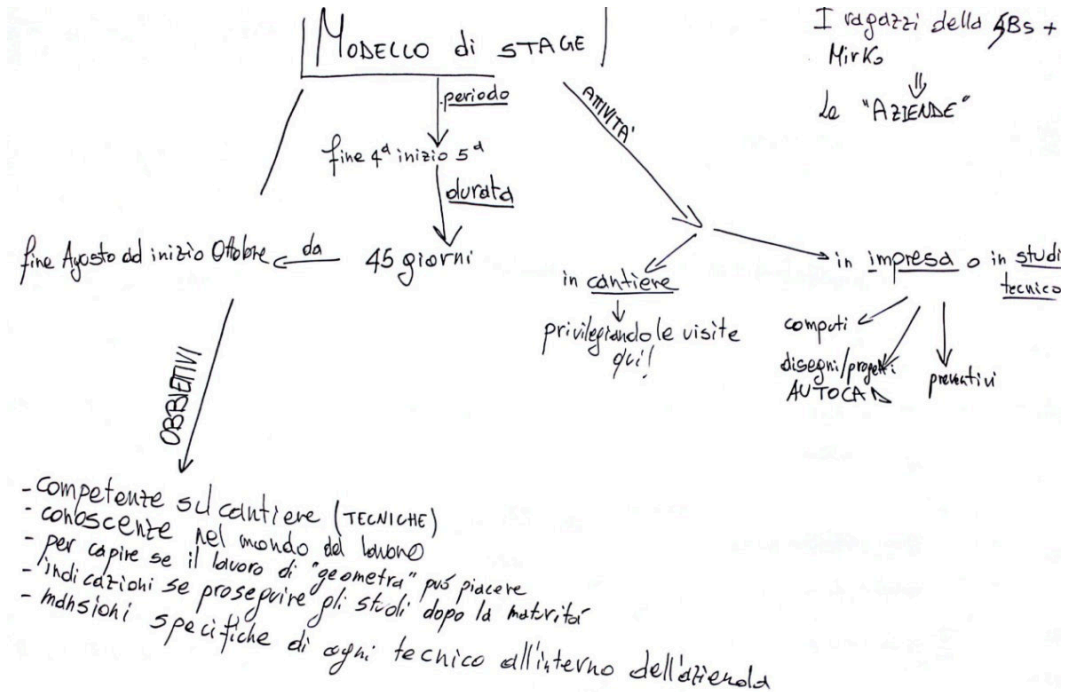 MODELLO di STAGE
I ragazzi della 5Bs +
Mirko
le "AZIENDE"
periodo
fine 4ª inizio 5ª
durata
45 giorni
da
fine Agosto ad inizio Ottobre
ATTIVITA'
in cantiere
privilegiando le visite
qui!
in impresa o in studi
tecnico
computi
disegni/progetti
AUTOCAD
preventivi
OBBIETTIVI
- competenze sul cantiere (TECNICHE)
- conoscenze nel mondo del lavoro
- per capire se il lavoro di "geometra" può piacere
- indicazioni se proseguire gli studi dopo la maturità
- mansioni specifiche di ogni tecnico all'interno dell'azienda